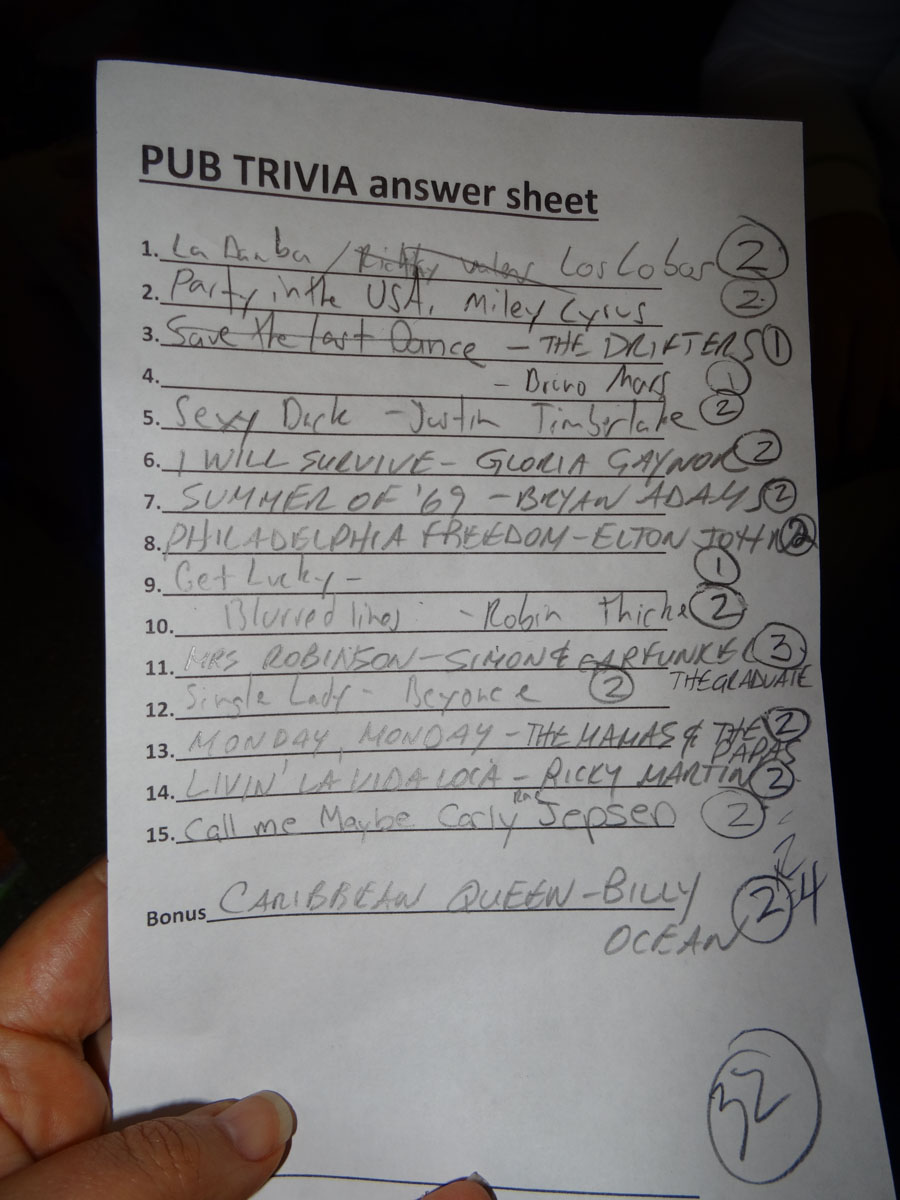 PUB TRIVIA answer sheet
1. La Bamba / Ritchy Valens Los Lobos 2
2. Party in the USA, Miley Cyrus 2
3. Save the last Dance - THE DRIFTERS 1
4. - Bruno Mars 1
5. Sexy Back - Justin Timberlake 2
6. I WILL SURVIVE - GLORIA GAYNOR 2
7. SUMMER OF '69 - BRYAN ADAMS 2
8. PHILADELPHIA FREEDOM - ELTON JOHN 2
9. Get Lucky - 1
10. Blurred lines - Robin Thicke 2
11. MRS ROBINSON - SIMON & GARFUNKEL 3
THE GRADUATE
12. Single Lady - Beyonce 2
13. MONDAY, MONDAY - THE MAMAS & THE 2
PAPAS
14. LIVIN' LA VIDA LOCA - RICKY MARTIN 2
15. Call me Maybe Carly Rae Jepsen 2
Bonus CARIBBEAN QUEEN - BILLY 2 4
OCEAN
32